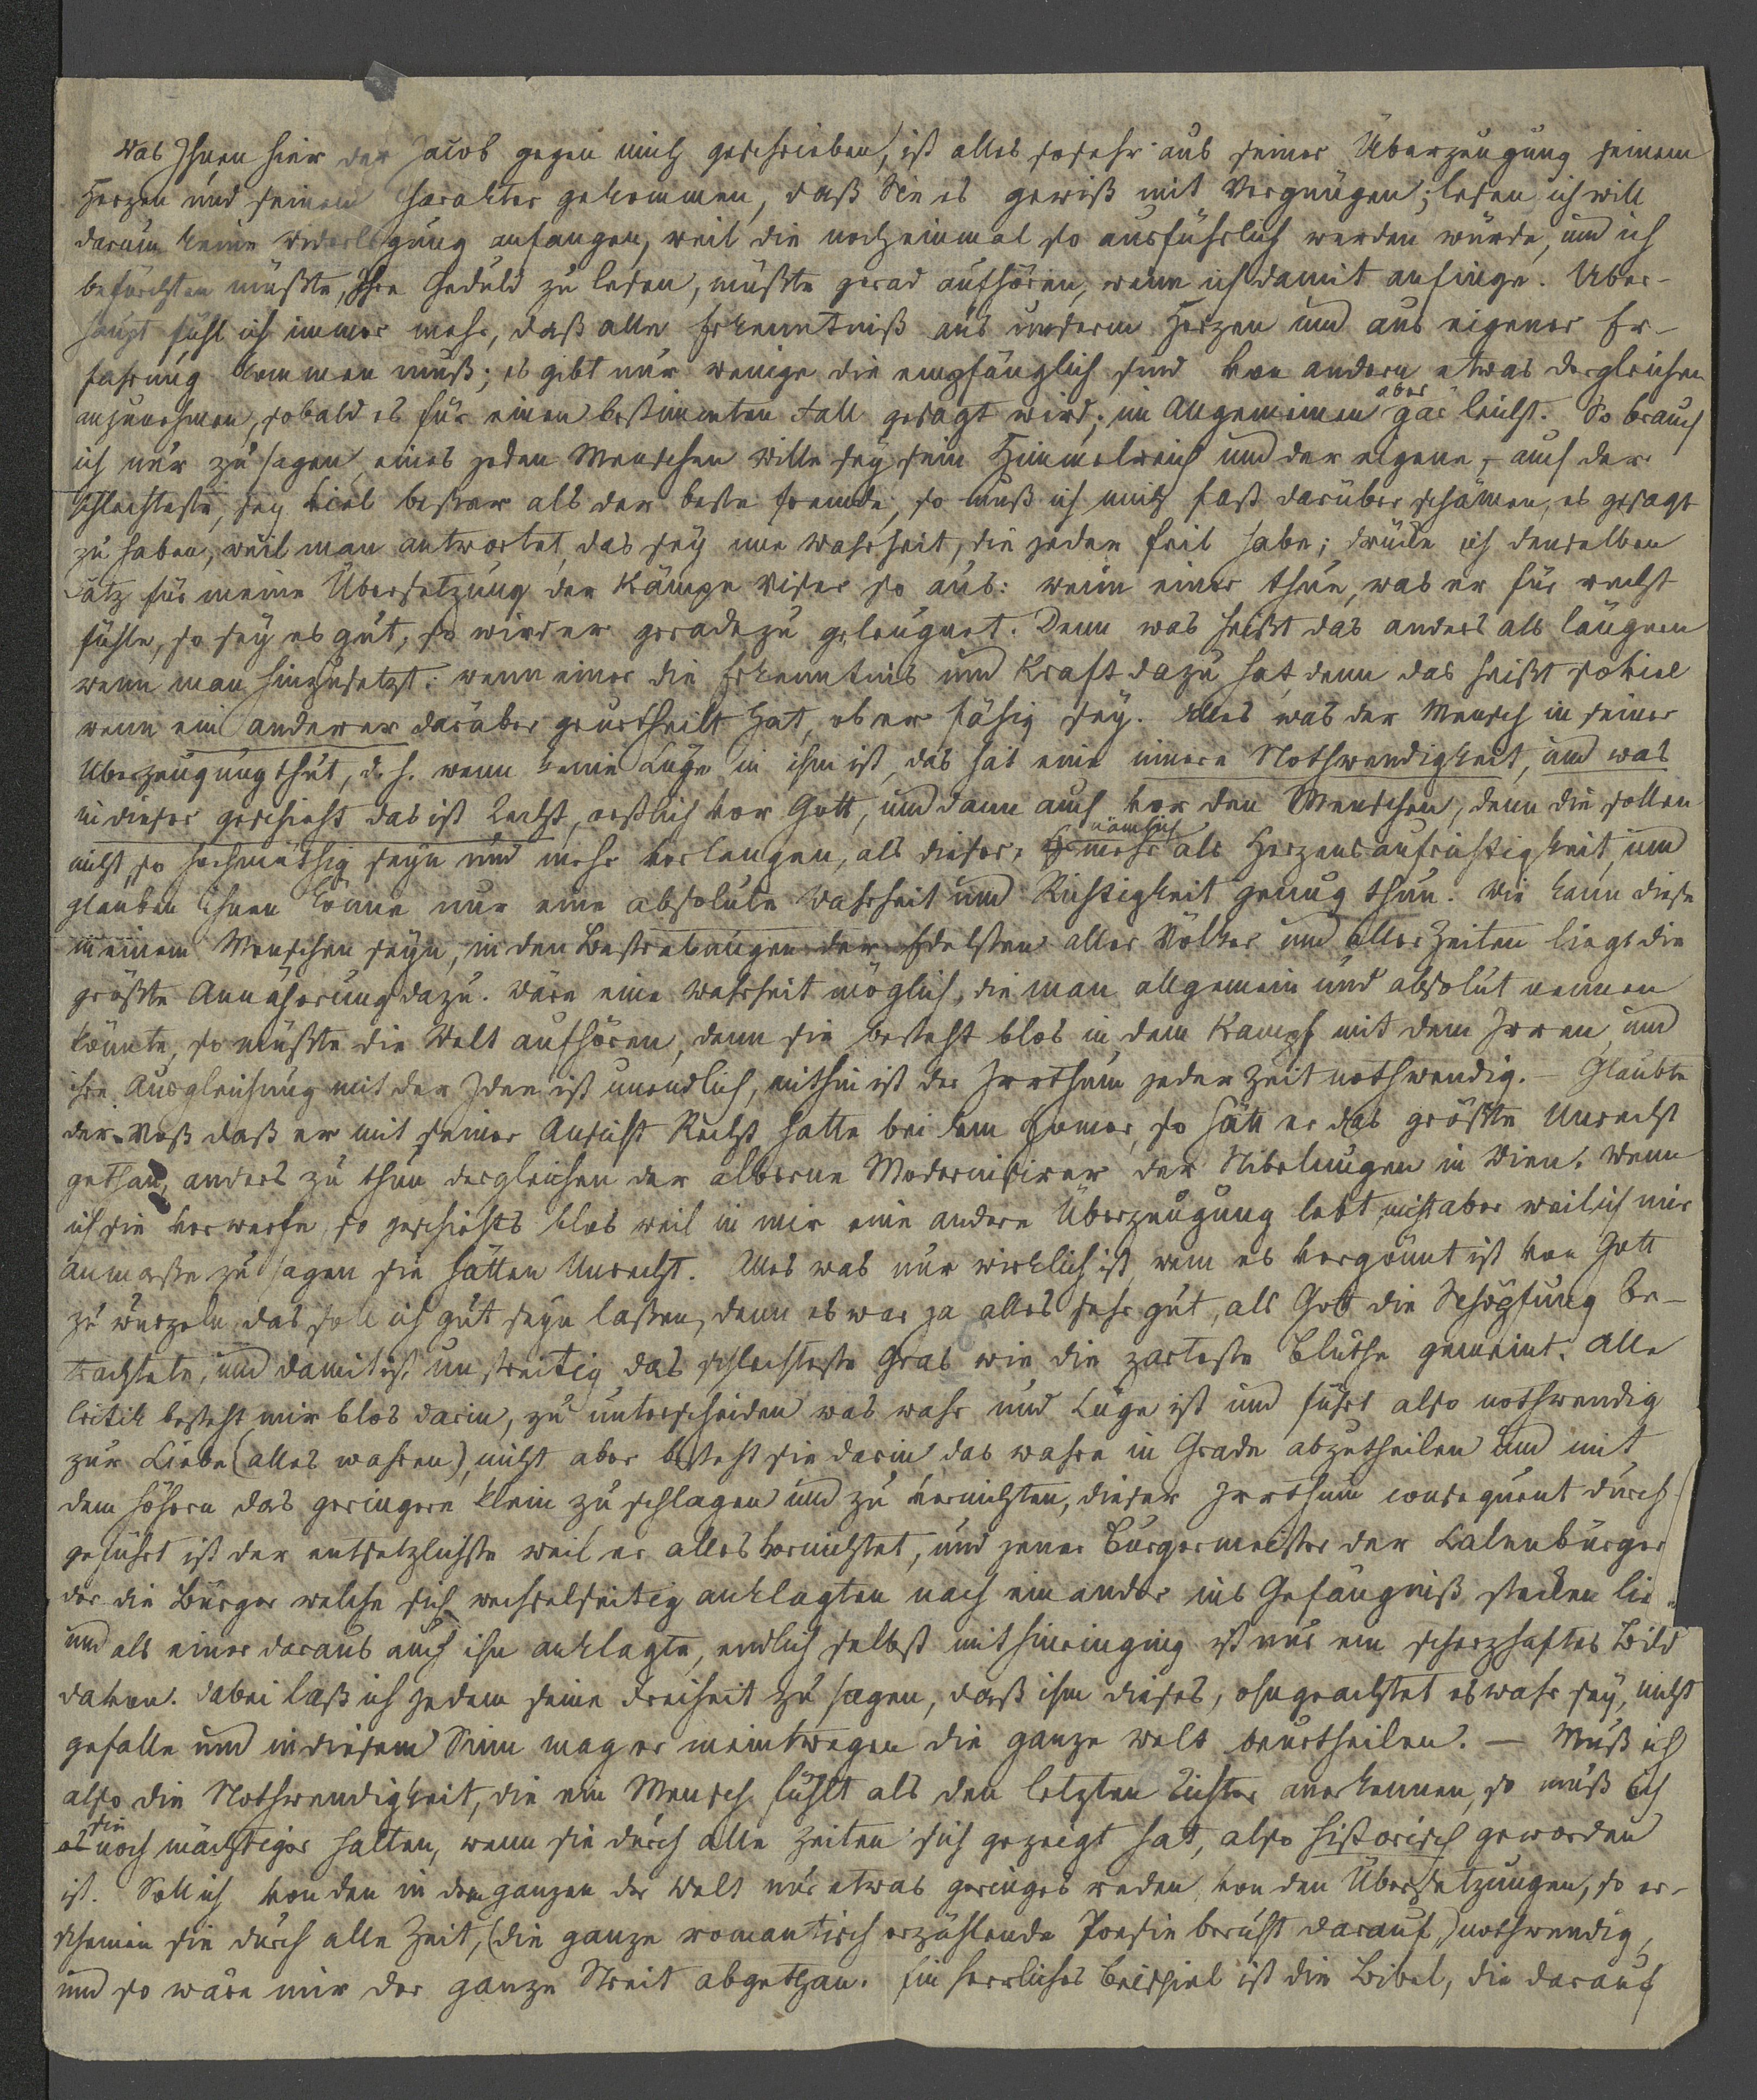 Was Ihnen hier der Jacob gegen mich geschrieben, ist alles sosehr aus seiner Überzeugung seinem
Herzen und seinem Charakter gekommen, daß Sie es gewiß mit Vergnügen; lesen ich will
darum keine Widerlegung anfangen, weil die noch einmal so ausführlich werden würde, und ich
befürchten müßte, Ihre Geduld zu lesen, müßte gerad aufhören, wenn ich damit anfinge. Über-
haupt fühl ich immer mehr, daß alle Erkenntniß aus unserm Herzen und aus eigener Er-
fahrung kommen muß; es gibt nur wenige die empfänglich sind von andern etwas dergleichen
anzunehmen, sobald es für einen bestimmten Fall gesagt wird; im Allgemeinen aber gar leicht. So brauch
ich nur zu sagen eines jeden Menschen Wille sey sein Himmelreich und der eigene, auch der
schlechteste, sey viel besser als der beste fremde, so muß ich mich fast darüber schämen, es gesagt
zu haben, weil man antwortet, das sey eine Wahrheit, die jeder feil habe; drücke ich denselben
Satz für meine Übersetzung der Kämpe Viser so aus: wenn einer thue, was er für recht
fühle, so sey es gut, so wird er geradezu geleugnet. Denn was heißt das anders als läugnen
wenn man hinzusetzt: wenn einer die Erkenntnis und Kraft dazu hat, denn das heißt soviel
wenn ein anderer darüber geurtheilt hat, ob er fähig sey. Alles was der Mensch in seiner
Überzeugung thut, d. h. wenn keine Lüge in ihm ist, das hat eine innere Nothwendigkeit, und was
in dieser geschieht das ist Recht, erstlich vor Gott, und dann auch vor den Menschen, denn die sollen
nicht so hochmüthig seyn und mehr verlangen, als dieser, nämlich mehr als Herzensaufrichtigkeit, und
glauben ihnen könne nur eine absolute Wahrheit und Richtigkeit genug thun. Wie kann diese
in einem Menschen seyn, in den Bestrebungen der Edelsten aller Völker und aller Zeiten liegt die
größte Annäherung dazu. Wäre eine Wahrheit möglich, die man allgemein und absolut nennen
könnte, so müßte die Welt aufhören, denn sie besteht blos in dem Kampf mit dem Irren, und
ihre Ausgleichung mit der Idee ist unendlich, mithin ist der Irrthum jeder Zeit nothwendig. — Glaubte
der Voß daß er mit seiner Ansicht Recht hatte bei dem Homer, so hätt er das größte Unrecht
gethan, anders zu thun dergleichen der alberne Modernisirer der Nibelungen in Wien. Wenn
ich sie verwerfe, so geschiehts blos weil in mir eine andere Überzeugung lebt, nicht aber weil ich mir
anmaße zu sagen sie hätten Unrecht. Alles was nur wirklich ist, wem es vergönnt ist von Gott
zu wurzeln, das soll ich gut seyn laßen, denn es war ja alles sehr gut, als Gott die Schöpfung be-
trachtete, und damit ist unstreitig das schlechteste Gras wie die zarteste Blüthe gemeint. Alle
Critik besteht mir blos darin, zu unterscheiden was wahr und Lüge ist und führt also nothwendig
zur Liebe (alles wahren), nicht aber besteht sie darin das wahre in Grade abzutheilen und mit
dem höhern das geringere klein zu schlagen und zu vernichten, dieser Irrthum consequent durch-
geführt ist der entsetzlichste weil er alles vernichtet, und jener Bürgermeister der Lalenbürger
der die Bürger welche sich wechselseitig anklagten nach einander ins Gefängniß stecken lie
und als einer daraus auch ihn anklagte, endlich selbst mit hineinging ist nur ein scherzhaftes Bild
davon. Dabei laß ich jedem seine Freiheit zu sagen, daß ihm dieses, ohngeachtet es wahr sey, nicht
gefalle und in diesem Sinn mag er meintwegen die ganze Welt beurtheilen. — Muß ich
also die Nothwendigkeit, die ein Mensch fühlt als den letzten Richter anerkennen, so muß ich
sie noch mächtiger halten, wenn sie durch alle Zeiten sich gezeigt hat, also historisch geworden
ist. Soll ich von den in dem ganzen der Welt nur etwas geringes reden, von den Übersetzungen, so er-
scheinen sie durch alle Zeit, (die ganze romantisch erzählende Poesie beruht darauf) nothwendig,
und so wäre mir der ganze Streit abgethan. Ein herrliches Beispiel ist die Bibel, die darauf